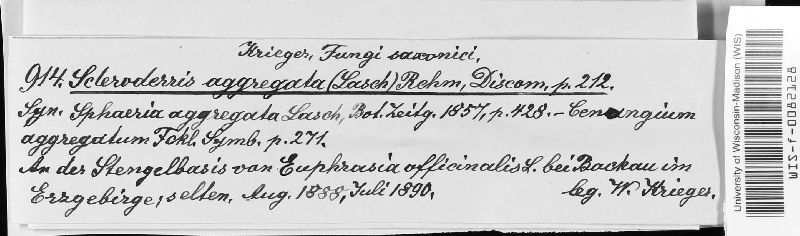 Krieger, Fungi saxonici.
914. Scleroderris aggregata (Lasch) Rehm, Discom. p. 212.
Syn. Sphaeria aggregata Lasch, Bot. Zeitg. 1857, p. 428. – Cenangium
aggregatum Fckl. Symb. p. 271.
An der Stengelbasis von Euphrasia officinalis L. bei Bockau im
Erzgebirge, selten. Aug. 1888, Juli 1890.
leg. W. Krieger.
University of Wisconsin-Madison (WIS)
WIS-f-0082128